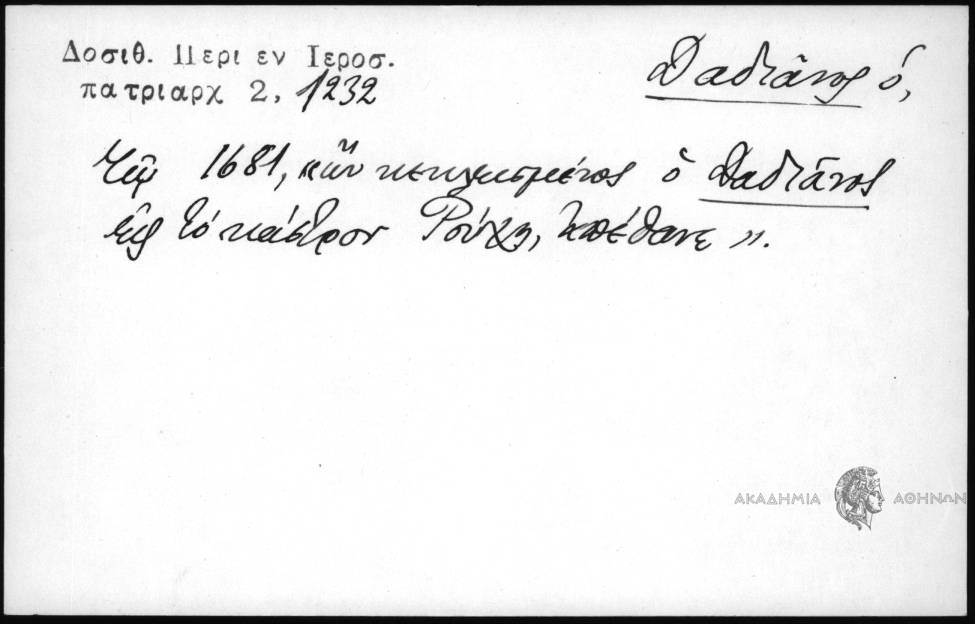 Δοσιθ. Περι εν Ιεροσ.
πατριαρχ 2, 1232
Δαδιᾶνος ὁ,
1681, «ὢν κεκλεισμένος ὁ Δαδιᾶνος
εἰς τὸ κάστρον Ρούχη, ἀπέθανε».
ΑΚΑΔΗΜΙΑ ΑΘΗΝΩΝ